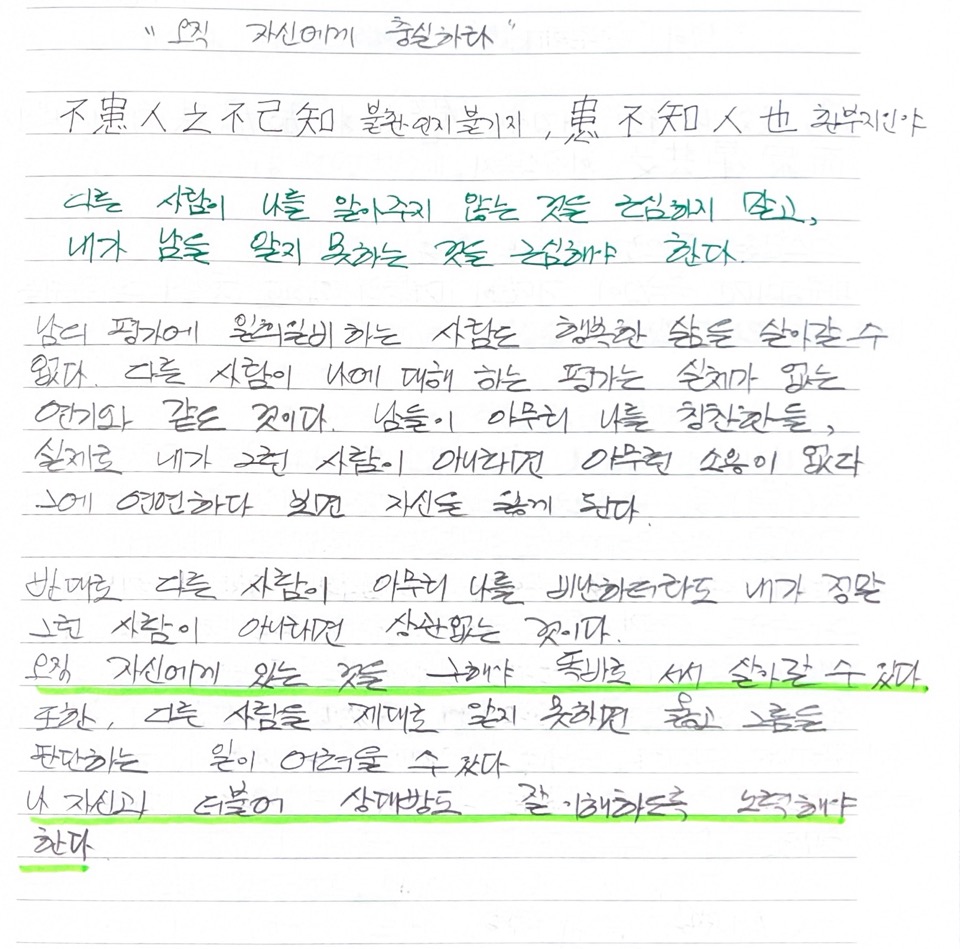 "오직 자신에게 충실하라"
不患人之不己知 불환인지불기지, 患不知人也 환부지인야
다른 사람이 나를 알아주지 않는 것을 근심하지 말고,
내가 남을 알지 못하는 것을 근심해야 한다.
남의 평가에 일희일비 하는 사람은 행복한 삶을 살아갈 수
없다. 다른 사람이 나에 대해 하는 평가는 실체가 없는
연기와 같은 것이다. 남들이 아무리 나를 칭찬한들,
실제로 내가 그런 사람이 아니라면 아무런 소용이 없다
그에 연연하다 보면 자신을 잃게 된다.
반대로 다른 사람이 아무리 나를 비난하더라도 내가 정말
그런 사람이 아니라면 상관없는 것이다.
오직 자신에게 있는 것을 구해야 똑바로 서서 살아갈 수 있다.
또한, 다른 사람을 제대로 알지 못하면 옳고 그름을
판단하는 일이 어려울 수 있다
나 자신과 더불어 상대방도 잘 이해하도록 노력해야
한다.